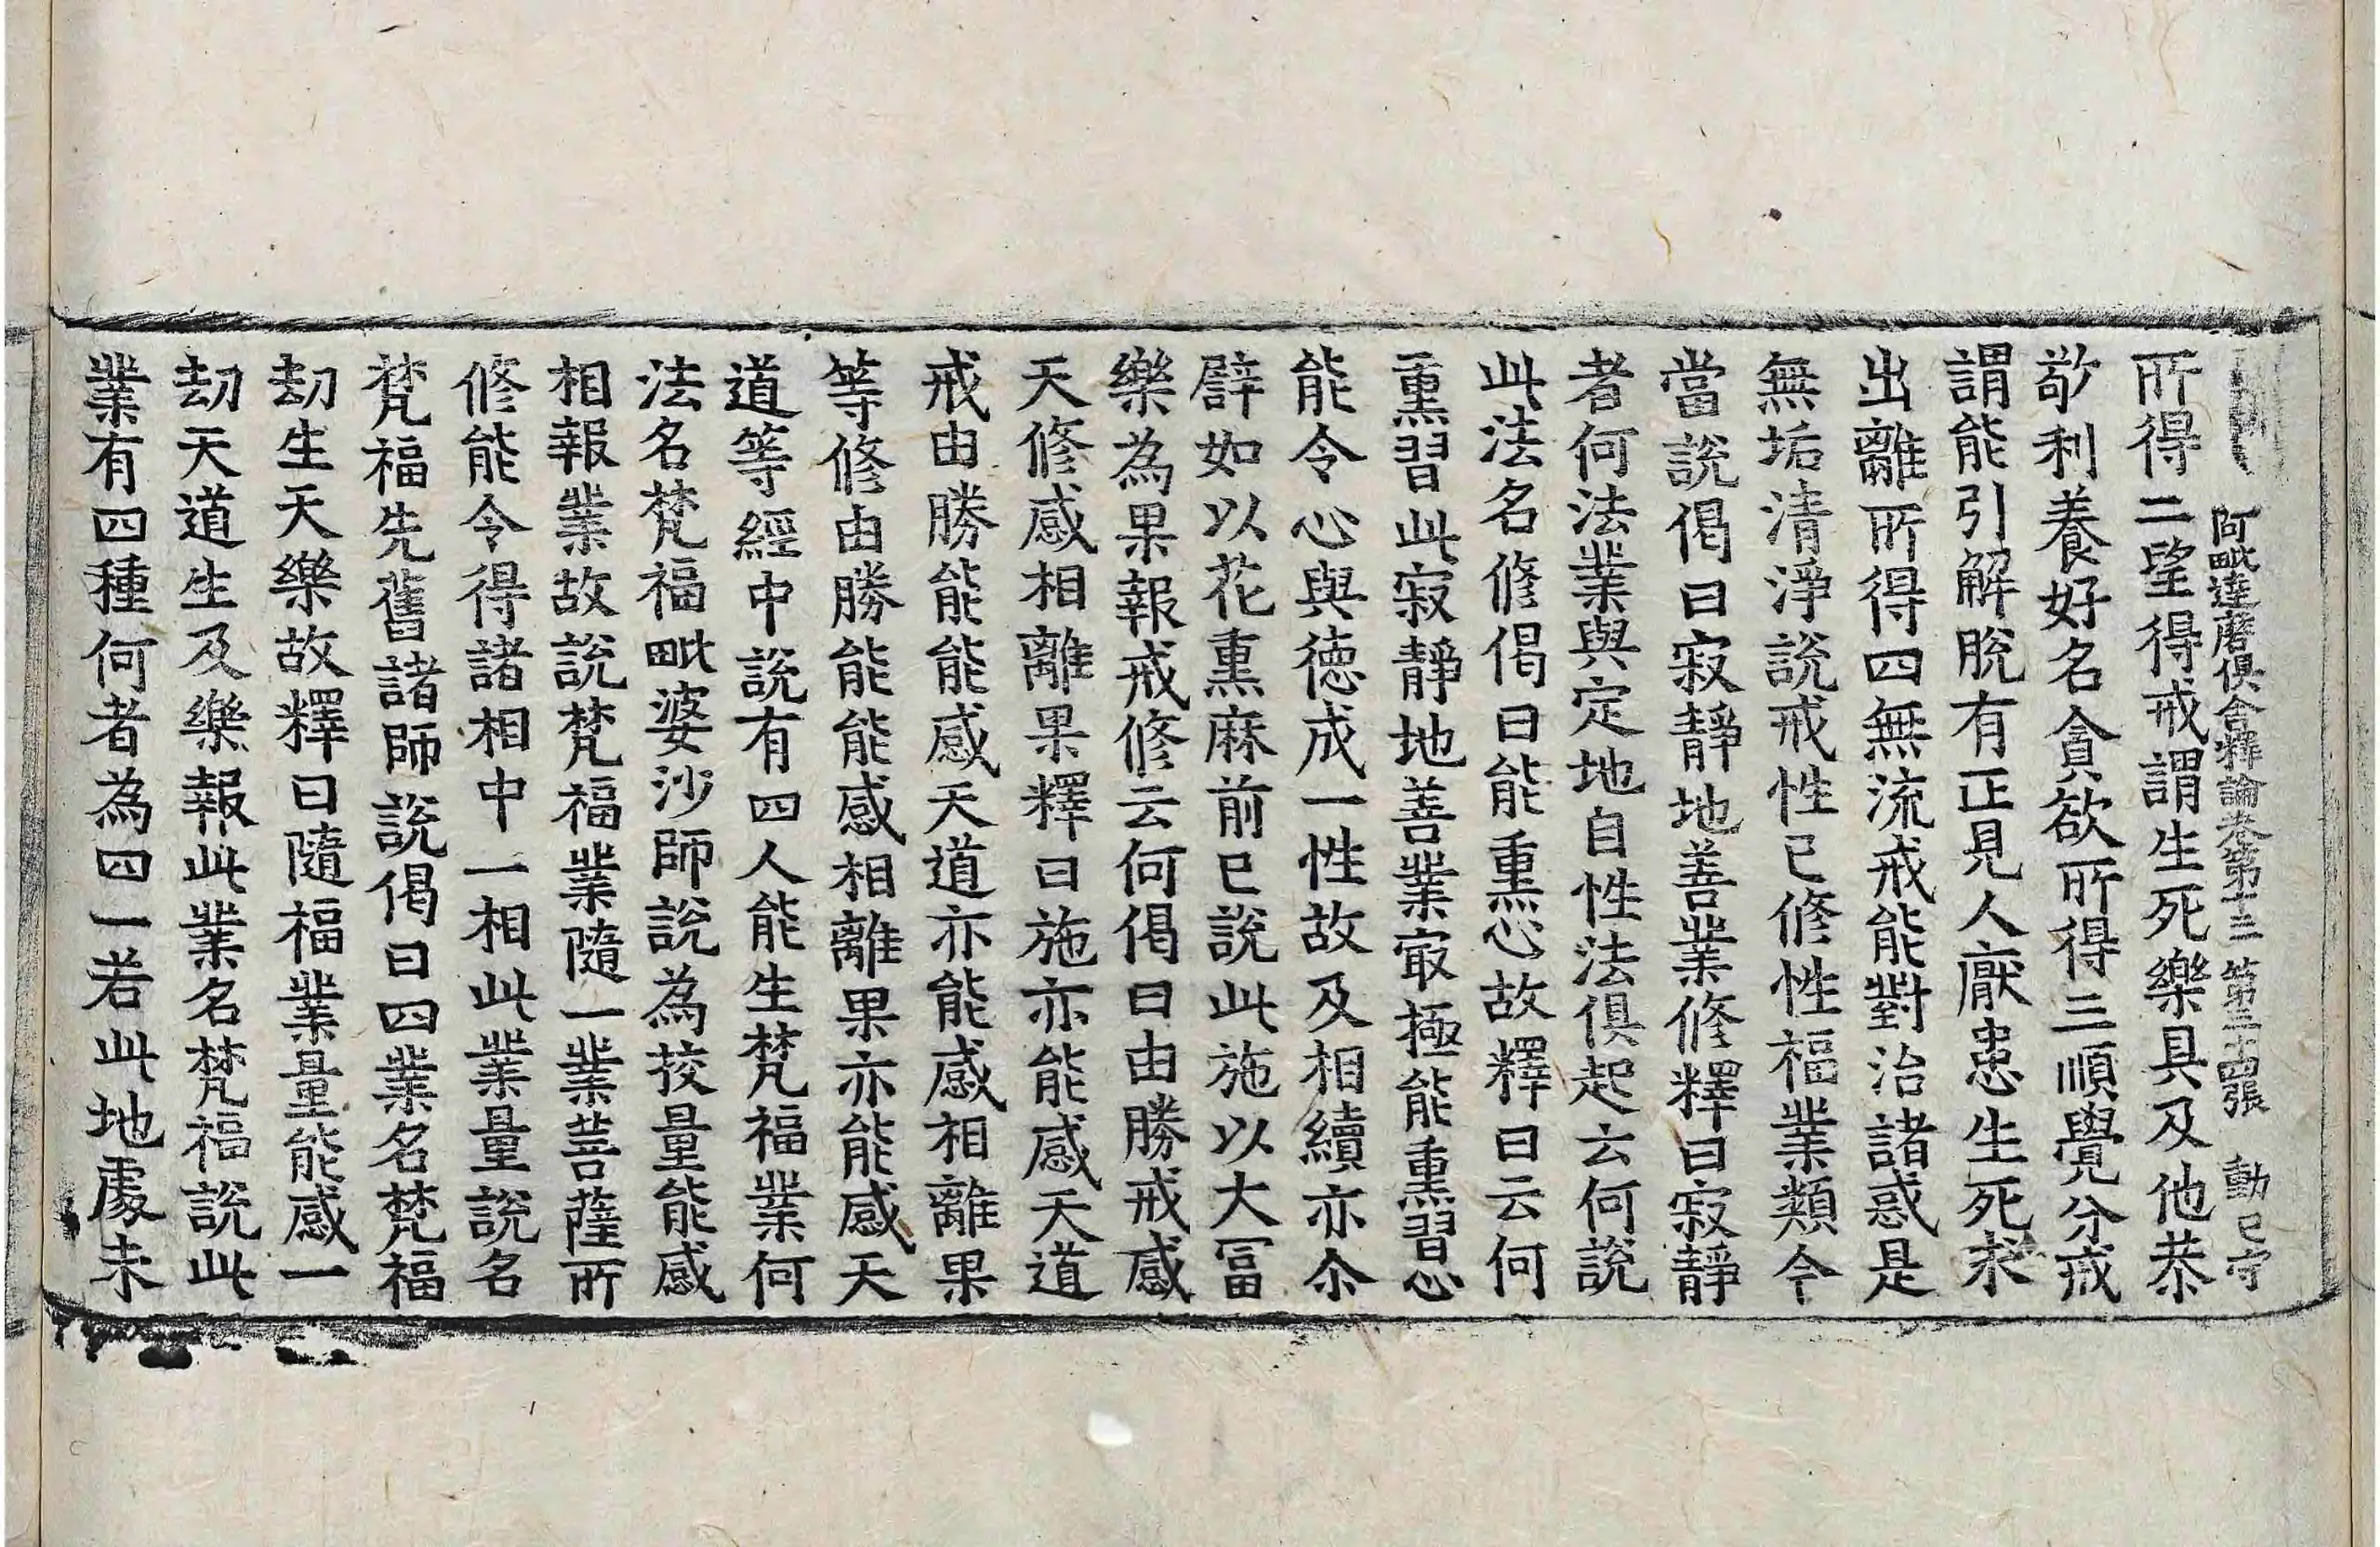 阿毗達磨俱舍釋論卷第十三 第三十四張 動 已守
所得二望得戒謂生死樂具及他恭
敬利養好名貪欲所得三順覺分戒
謂能引解脫有正見人厭患生死求
出離所得四無流戒能對治諸惑是
無垢清淨說戒性已修性福業類今
當說偈曰寂靜地善業修釋曰寂靜
者何法業與定地自性法俱起云何說
此法名修偈曰能熏心故釋曰云何
熏習此寂靜地善業㝡極能熏習心
能令心與德成一性故及相續亦尒
譬如以花熏麻前已說此施以大冨
樂為果報戒修云何偈曰由勝戒感
天修感相離果釋曰施亦能感天道
戒由勝能能感天道亦能感相離果
等修由勝能能感相離果亦能感天
道等經中說有四人能生梵福業何
法名梵福毗婆沙師說為挍量能感
相報業故說梵福業隨一業菩薩所
修能令得諸相中一相此業量說名
梵福先舊諸師說偈曰四業名梵福
劫生天樂故釋曰隨福業量能感一
劫天道生及樂報此業名梵福說此
業有四種何者為四一若此地處未